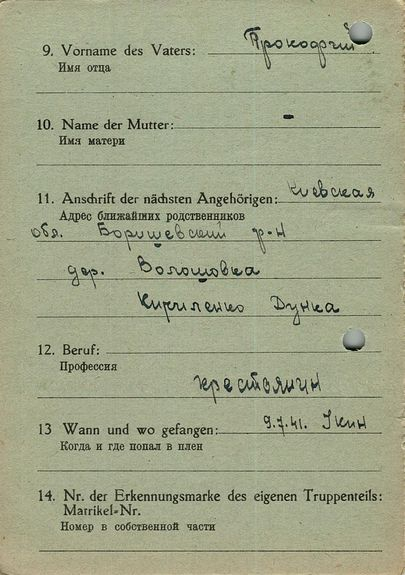 9. Vorname des Vaters: Прокофий
Имя отца
10. Name der Mutter: -
Имя матери
11. Anschrift der nächsten Angehörigen: Киевская
Адрес ближайших родственников
обл. Боришевский р-н
дер. Волошовка
Кириленко Дунка
12. Beruf:
Профессия
крестоянин
13 Wann und wo gefangen: 9.7.41.
Когда и где попал в плен
14. Nr. der Erkennungsmarke des eigenen Truppenteils:
Matrikel-Nr.
Номер в собственной части